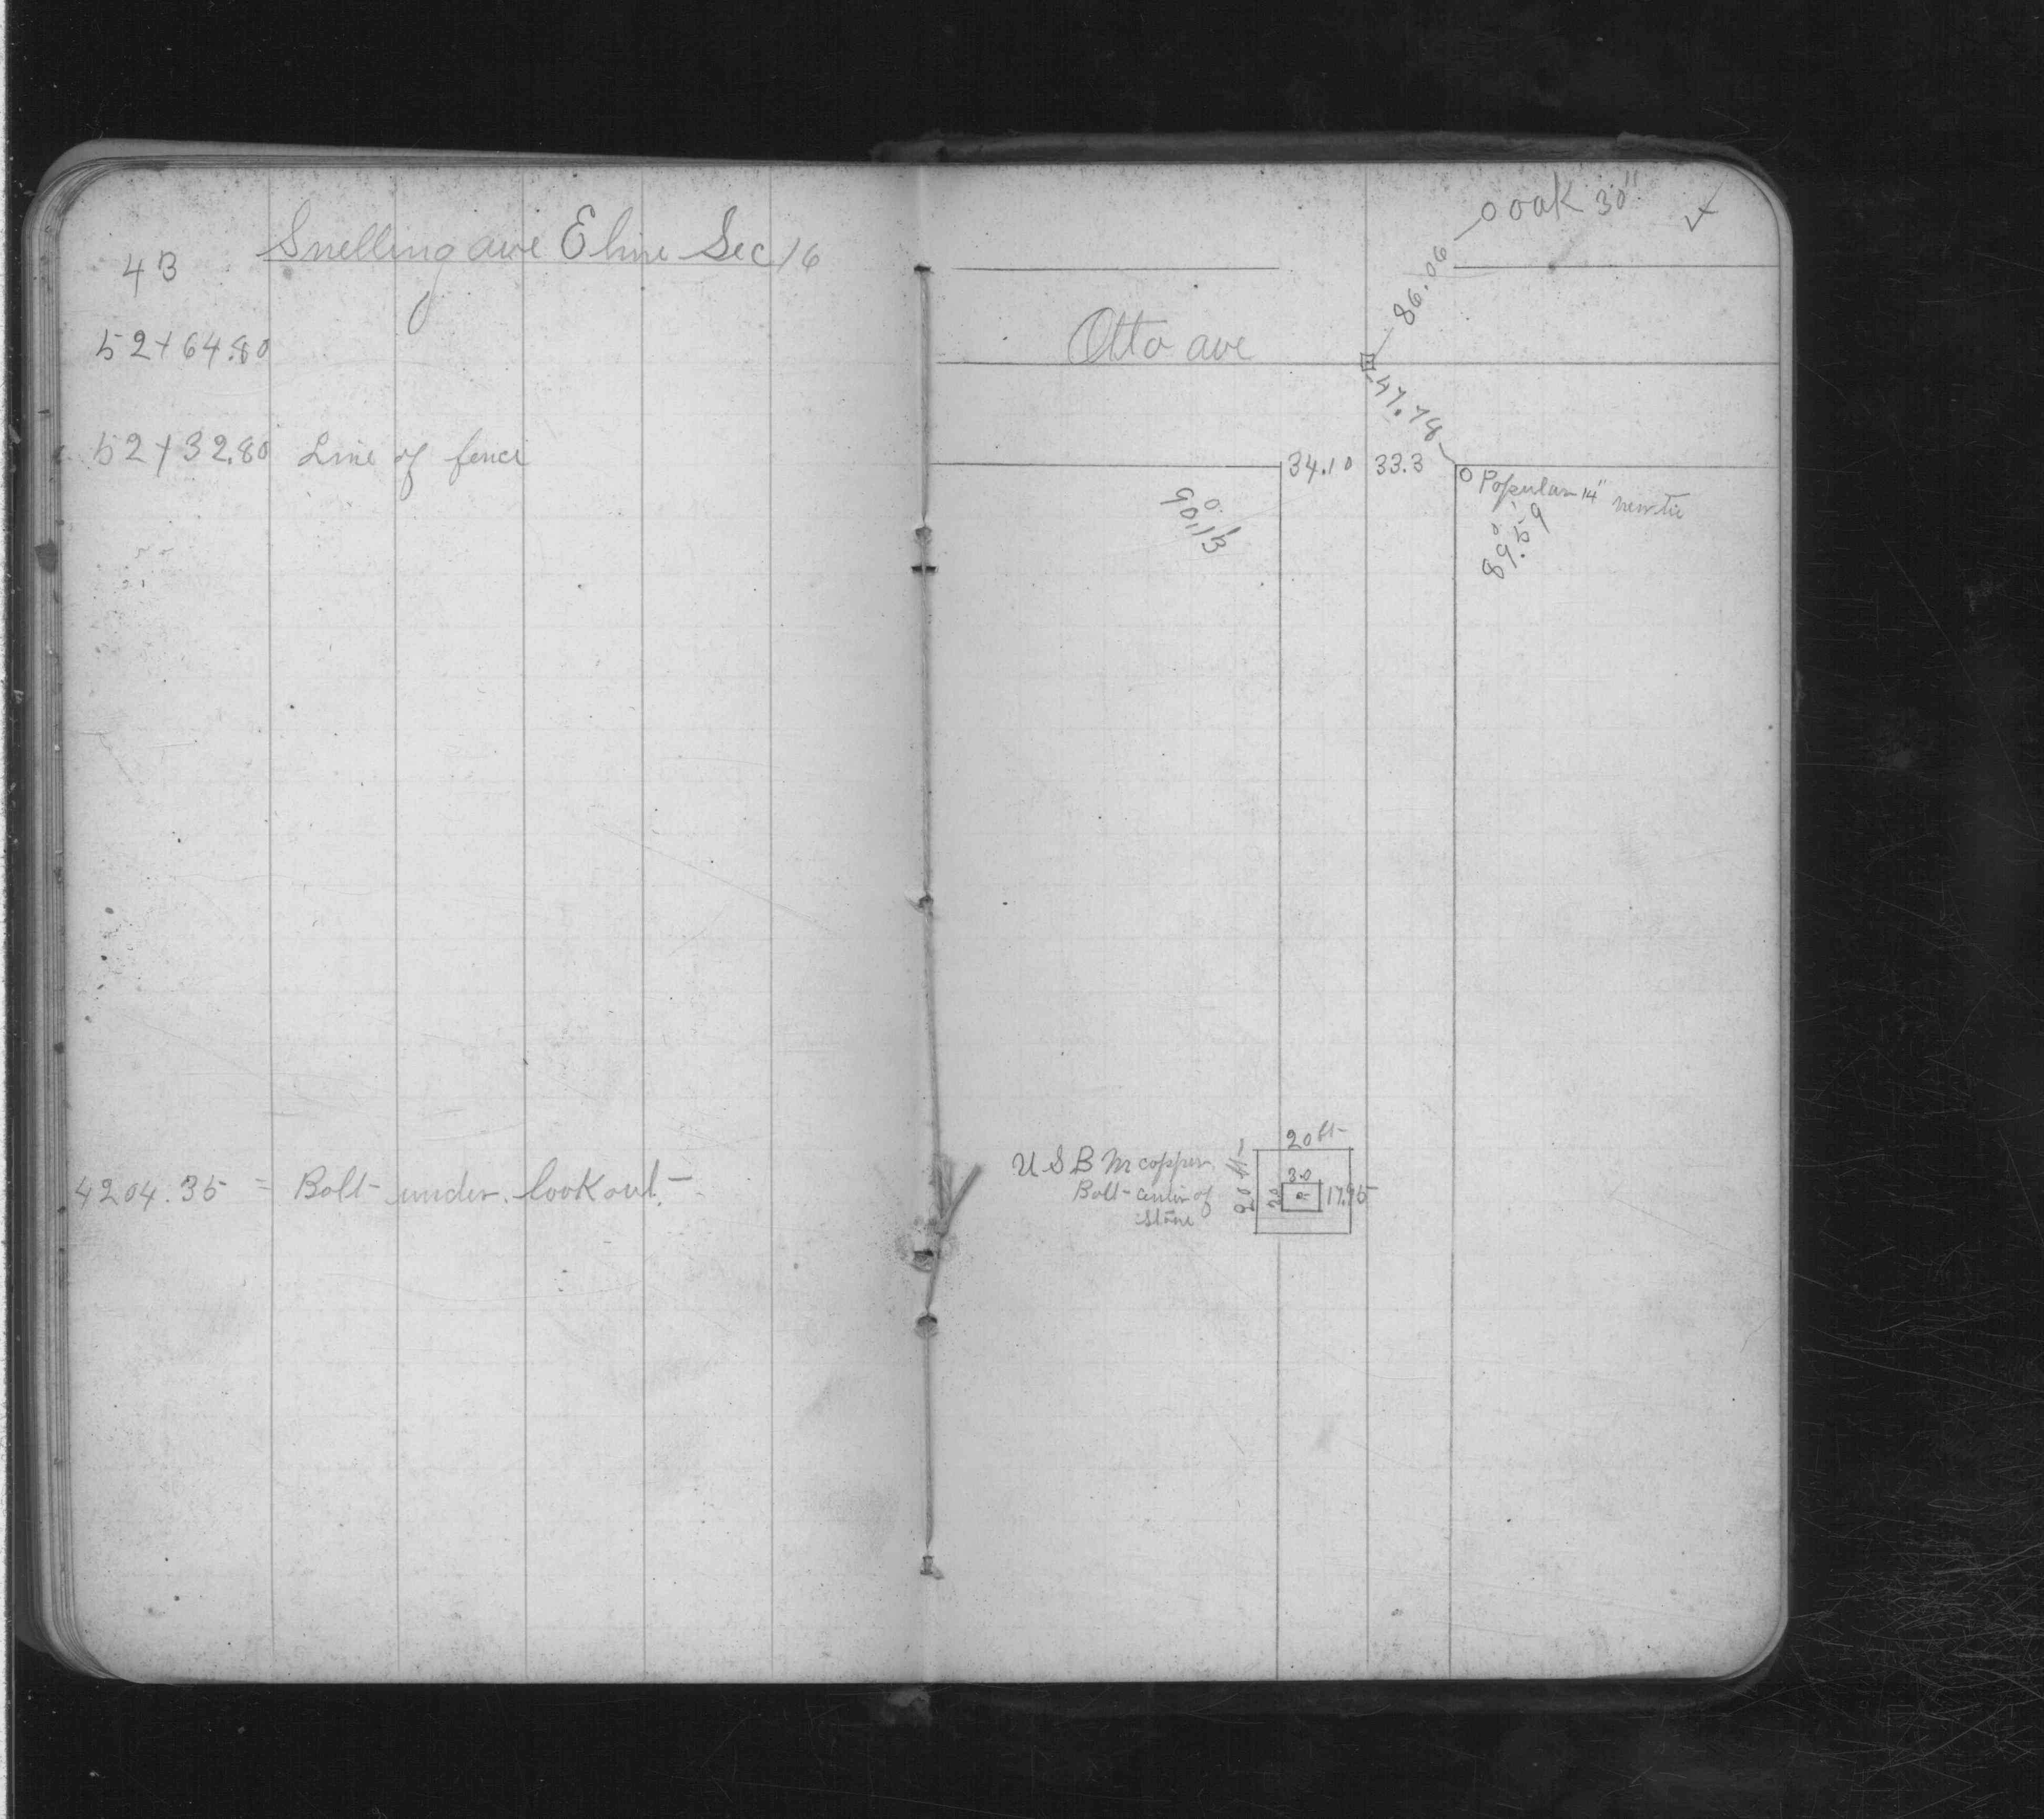 43
Snelling ave E line Sec 16
52+64.80
52+32.80 Line of fence
4204.35 = Bolt under look out
o oak 30"
86.06
Otto ave
47.78
34.10 33.3
o Popular 14" new tie
90° 13'
89° 59
20 ft
U S B M copper
Bolt - center of
stone
20 ft
30
20
17.95